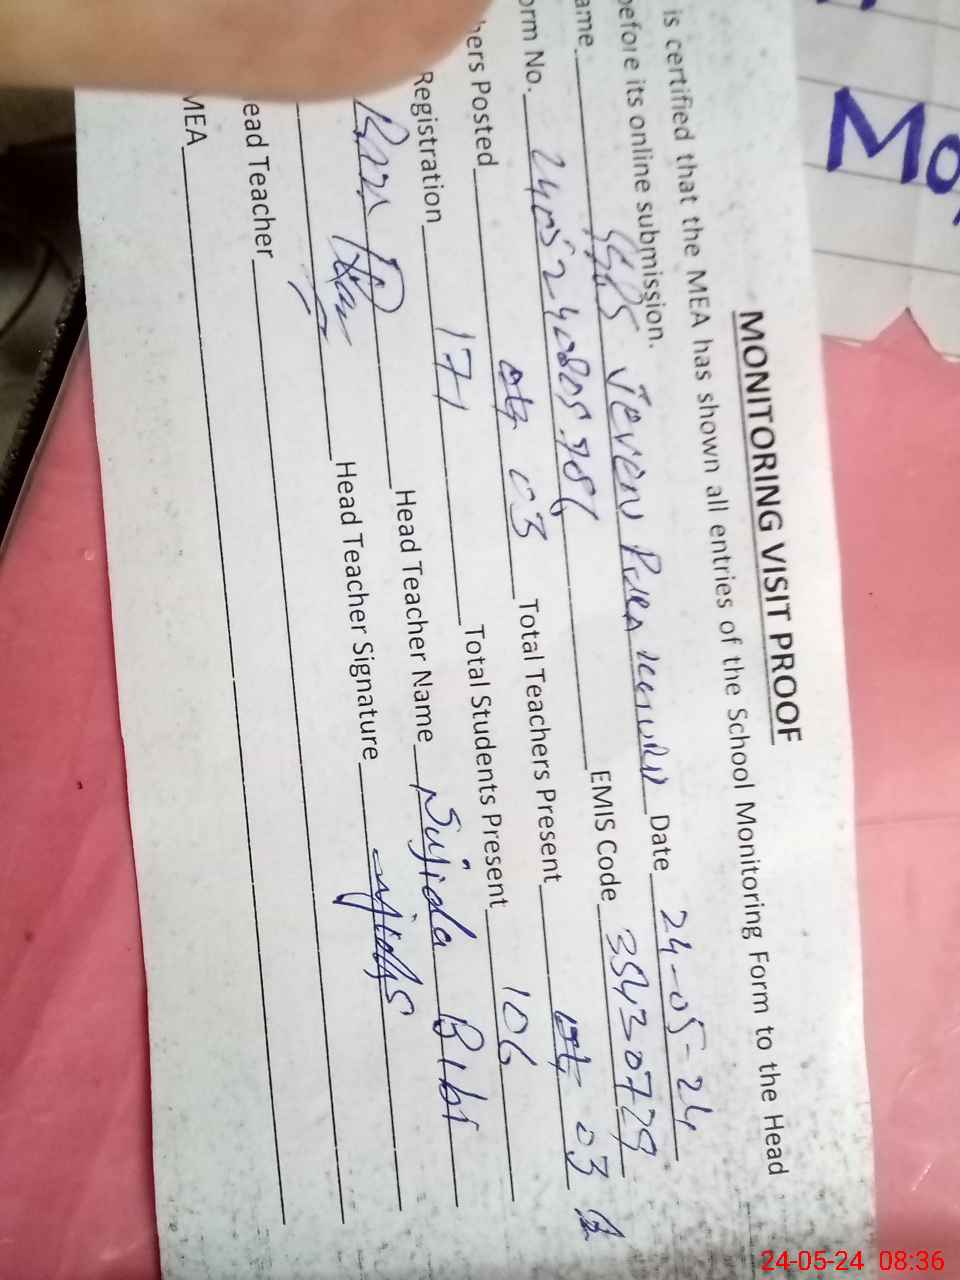 Mo
MONITORING VISIT PROOF
is certified that the MEA has shown all entries of the School Monitoring Form to the Head
before its online submission.
ame Jeven Date 24-05-24
orm No. EMIS Code 35430729
hers Posted 03 Total Teachers Present 03
Registration 171 Total Students Present 106
Head Teacher Name Najida Bibi
Head Teacher Signature
ead Teacher
MEA
24-05-24 08:36